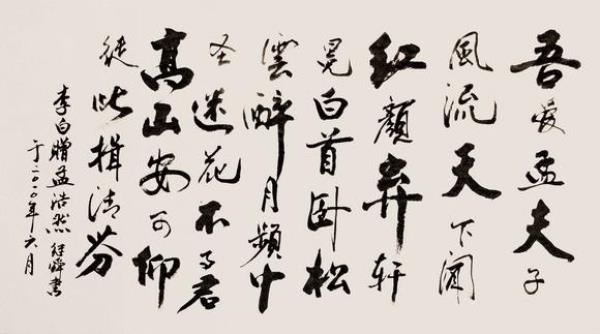 吾爱孟夫子
風流天下闻
红颜弃轩
冕白首卧松
雲醉月頻中
圣迷花不事君
高山安可仰
徒此揖清芬
李白贈孟浩然 書
于二〇一〇年六月